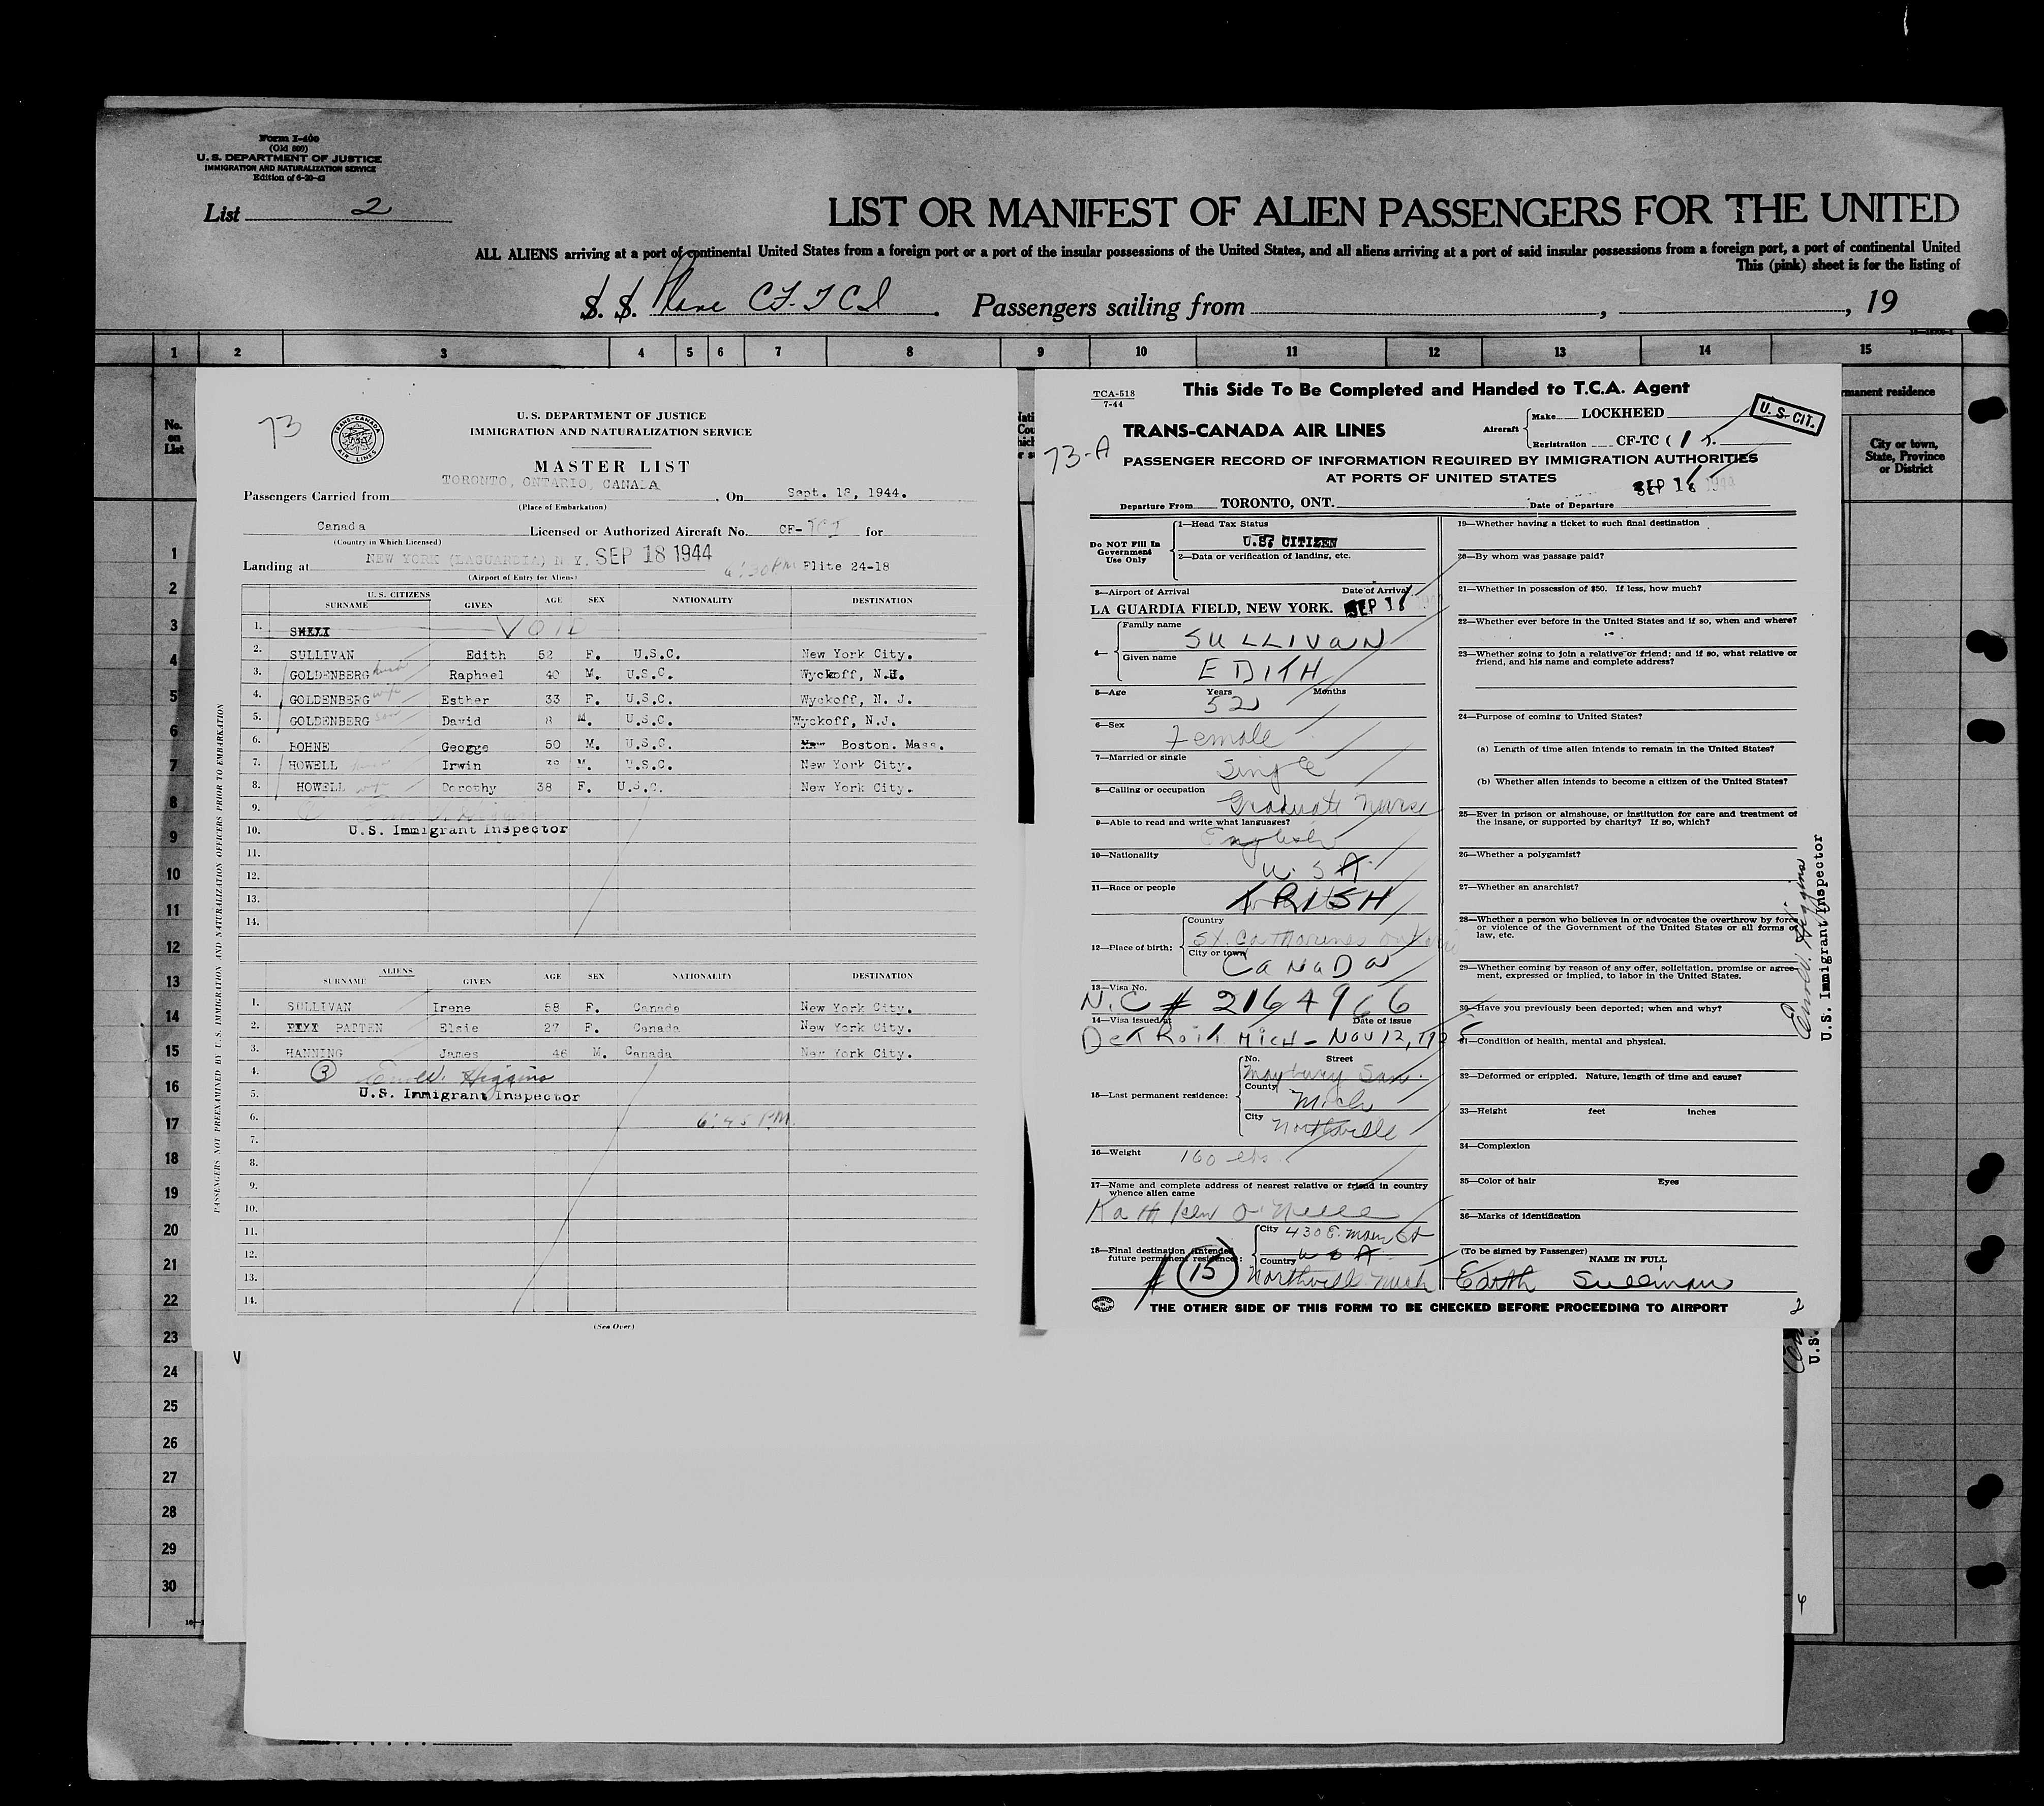 Form I-400
(Old 500)
U. S. DEPARTMENT OF JUSTICE
IMMIGRATION AND NATURALIZATION SERVICE
Edition of 6-20-42
List 2
LIST OR MANIFEST OF ALIEN PASSENGERS FOR THE UNITED
ALL ALIENS arriving at a port of continental United States from a foreign port or a port of the insular possessions of the United States, and all aliens arriving at a port of said insular possessions from a foreign port, a port of continental United
This (pink) sheet is for the listing of
S. S. Plane CF-TCI. Passengers sailing from , , 19
1 2 3 4 5 6 7 8 9 10 11 12 13 14 15
No. on List
rmanent residence
City or town, State, Province or District
1
2
3
4
5
6
7
8
9
10
11
12
13
14
15
16
17
18
19
20
21
22
23
24
25
26
27
28
29
30
73
TRANS-CANADA AIR LINES
U. S. DEPARTMENT OF JUSTICE
IMMIGRATION AND NATURALIZATION SERVICE
MASTER LIST
TORONTO, ONTARIO, CANADA
Passengers Carried from , On Sept. 18, 1944.
(Place of Embarkation)
Canada Licensed or Authorized Aircraft No. CF-TCI for
(Country in Which Licensed)
NEW YORK (LAGUARDIA) N.Y. SEP 18 1944
Landing at 6:30 PM Flite 24-18
(Airport of Entry for Aliens)
U. S. CITIZENS
SURNAME GIVEN AGE SEX NATIONALITY DESTINATION
1. VOID
2. SULLIVAN Edith 52 F. U.S.C. New York City.
3. GOLDENBERG Raphael 40 M. U.S.C. Wyckoff, N.H.
4. GOLDENBERG wife Esther 33 F. U.S.C. Wyckoff, N. J.
5. GOLDENBERG son David 8 M. U.S.C. Wyckoff, N.J.
6. BOHNE George 50 M. U.S.C. Boston. Mass.
7. HOWELL Irwin 39 M. U.S.C. New York City.
8. HOWELL wife Dorothy 38 F. U.S.C. New York City.
9.
10. U.S. Immigrant Inspector
11.
12.
13.
14.
ALIENS
SURNAME GIVEN AGE SEX NATIONALITY DESTINATION
1. SULLIVAN Irene 58 F. Canada New York City.
2. PATTEN Elsie 27 F. Canada New York City.
3. HANNING James 46 M. Canada New York City.
4. 3 Higgins
5. U.S. Immigrant Inspector
6. 6:45 PM.
7.
8.
9.
10.
11.
12.
13.
14.
(See Over)
PASSENGERS NOT PREEXAMINED BY U.S. IMMIGRATION AND NATURALIZATION OFFICERS PRIOR TO EMBARKATION
TCA-518
7-44
This Side To Be Completed and Handed to T.C.A. Agent
73-A
TRANS-CANADA AIR LINES
Aircraft
Make LOCKHEED
Registration CF-TC ( I ).
U. S. CIT.
PASSENGER RECORD OF INFORMATION REQUIRED BY IMMIGRATION AUTHORITIES
AT PORTS OF UNITED STATES
SEP 18
Departure From TORONTO, ONT. Date of Departure
Do NOT Fill In Government Use Only
1—Head Tax Status
U.S. CITIZEN
2—Data or verification of landing, etc.
3—Airport of Arrival Date of Arrival
LA GUARDIA FIELD, NEW YORK. SEP 18
4—
Family name
SULLIVAN
Given name
EDITH
5—Age Years Months
52
6—Sex
Female
7—Married or single
Single
8—Calling or occupation
Graduate Nurse
9—Able to read and write what languages?
English
10—Nationality
U.S.A.
11—Race or people
IRISH
12—Place of birth:
Country
St. Catharines Ontario
City or town
CANADA
13—Visa No.
N.C # 2164966
14—Visa issued at Date of issue
Detroit Mich - Nov 12, 192
15—Last permanent residence:
No. Street
Maybury San.
County
Mich
City
Northville
16—Weight 160 lbs.
17—Name and complete address of nearest relative or friend in country
whence alien came
Kathleen O'Neill
18—Final destination (intended future permanent residence):
City 430 E. Main St
Country U S A
Northville Mich
# 15
19—Whether having a ticket to such final destination
20—By whom was passage paid?
21—Whether in possession of $50. If less, how much?
22—Whether ever before in the United States and if so, when and where?
23—Whether going to join a relative or friend; and if so, what relative or
friend, and his name and complete address?
24—Purpose of coming to United States?
(a) Length of time alien intends to remain in the United States?
(b) Whether alien intends to become a citizen of the United States?
25—Ever in prison or almshouse, or institution for care and treatment of
the insane, or supported by charity? If so, which?
26—Whether a polygamist?
27—Whether an anarchist?
28—Whether a person who believes in or advocates the overthrow by force
or violence of the Government of the United States or all forms of
law, etc.
29—Whether coming by reason of any offer, solicitation, promise or agree-
ment, expressed or implied, to labor in the United States.
30—Have you previously been deported; when and why?
31—Condition of health, mental and physical.
32—Deformed or crippled. Nature, length of time and cause?
33—Height feet inches
34—Complexion
35—Color of hair Eyes
36—Marks of identification
(To be signed by Passenger) NAME IN FULL
Edith Sullivan
THE OTHER SIDE OF THIS FORM TO BE CHECKED BEFORE PROCEEDING TO AIRPORT
Higgins
U.S. Immigrant Inspector
2
U.S.
4